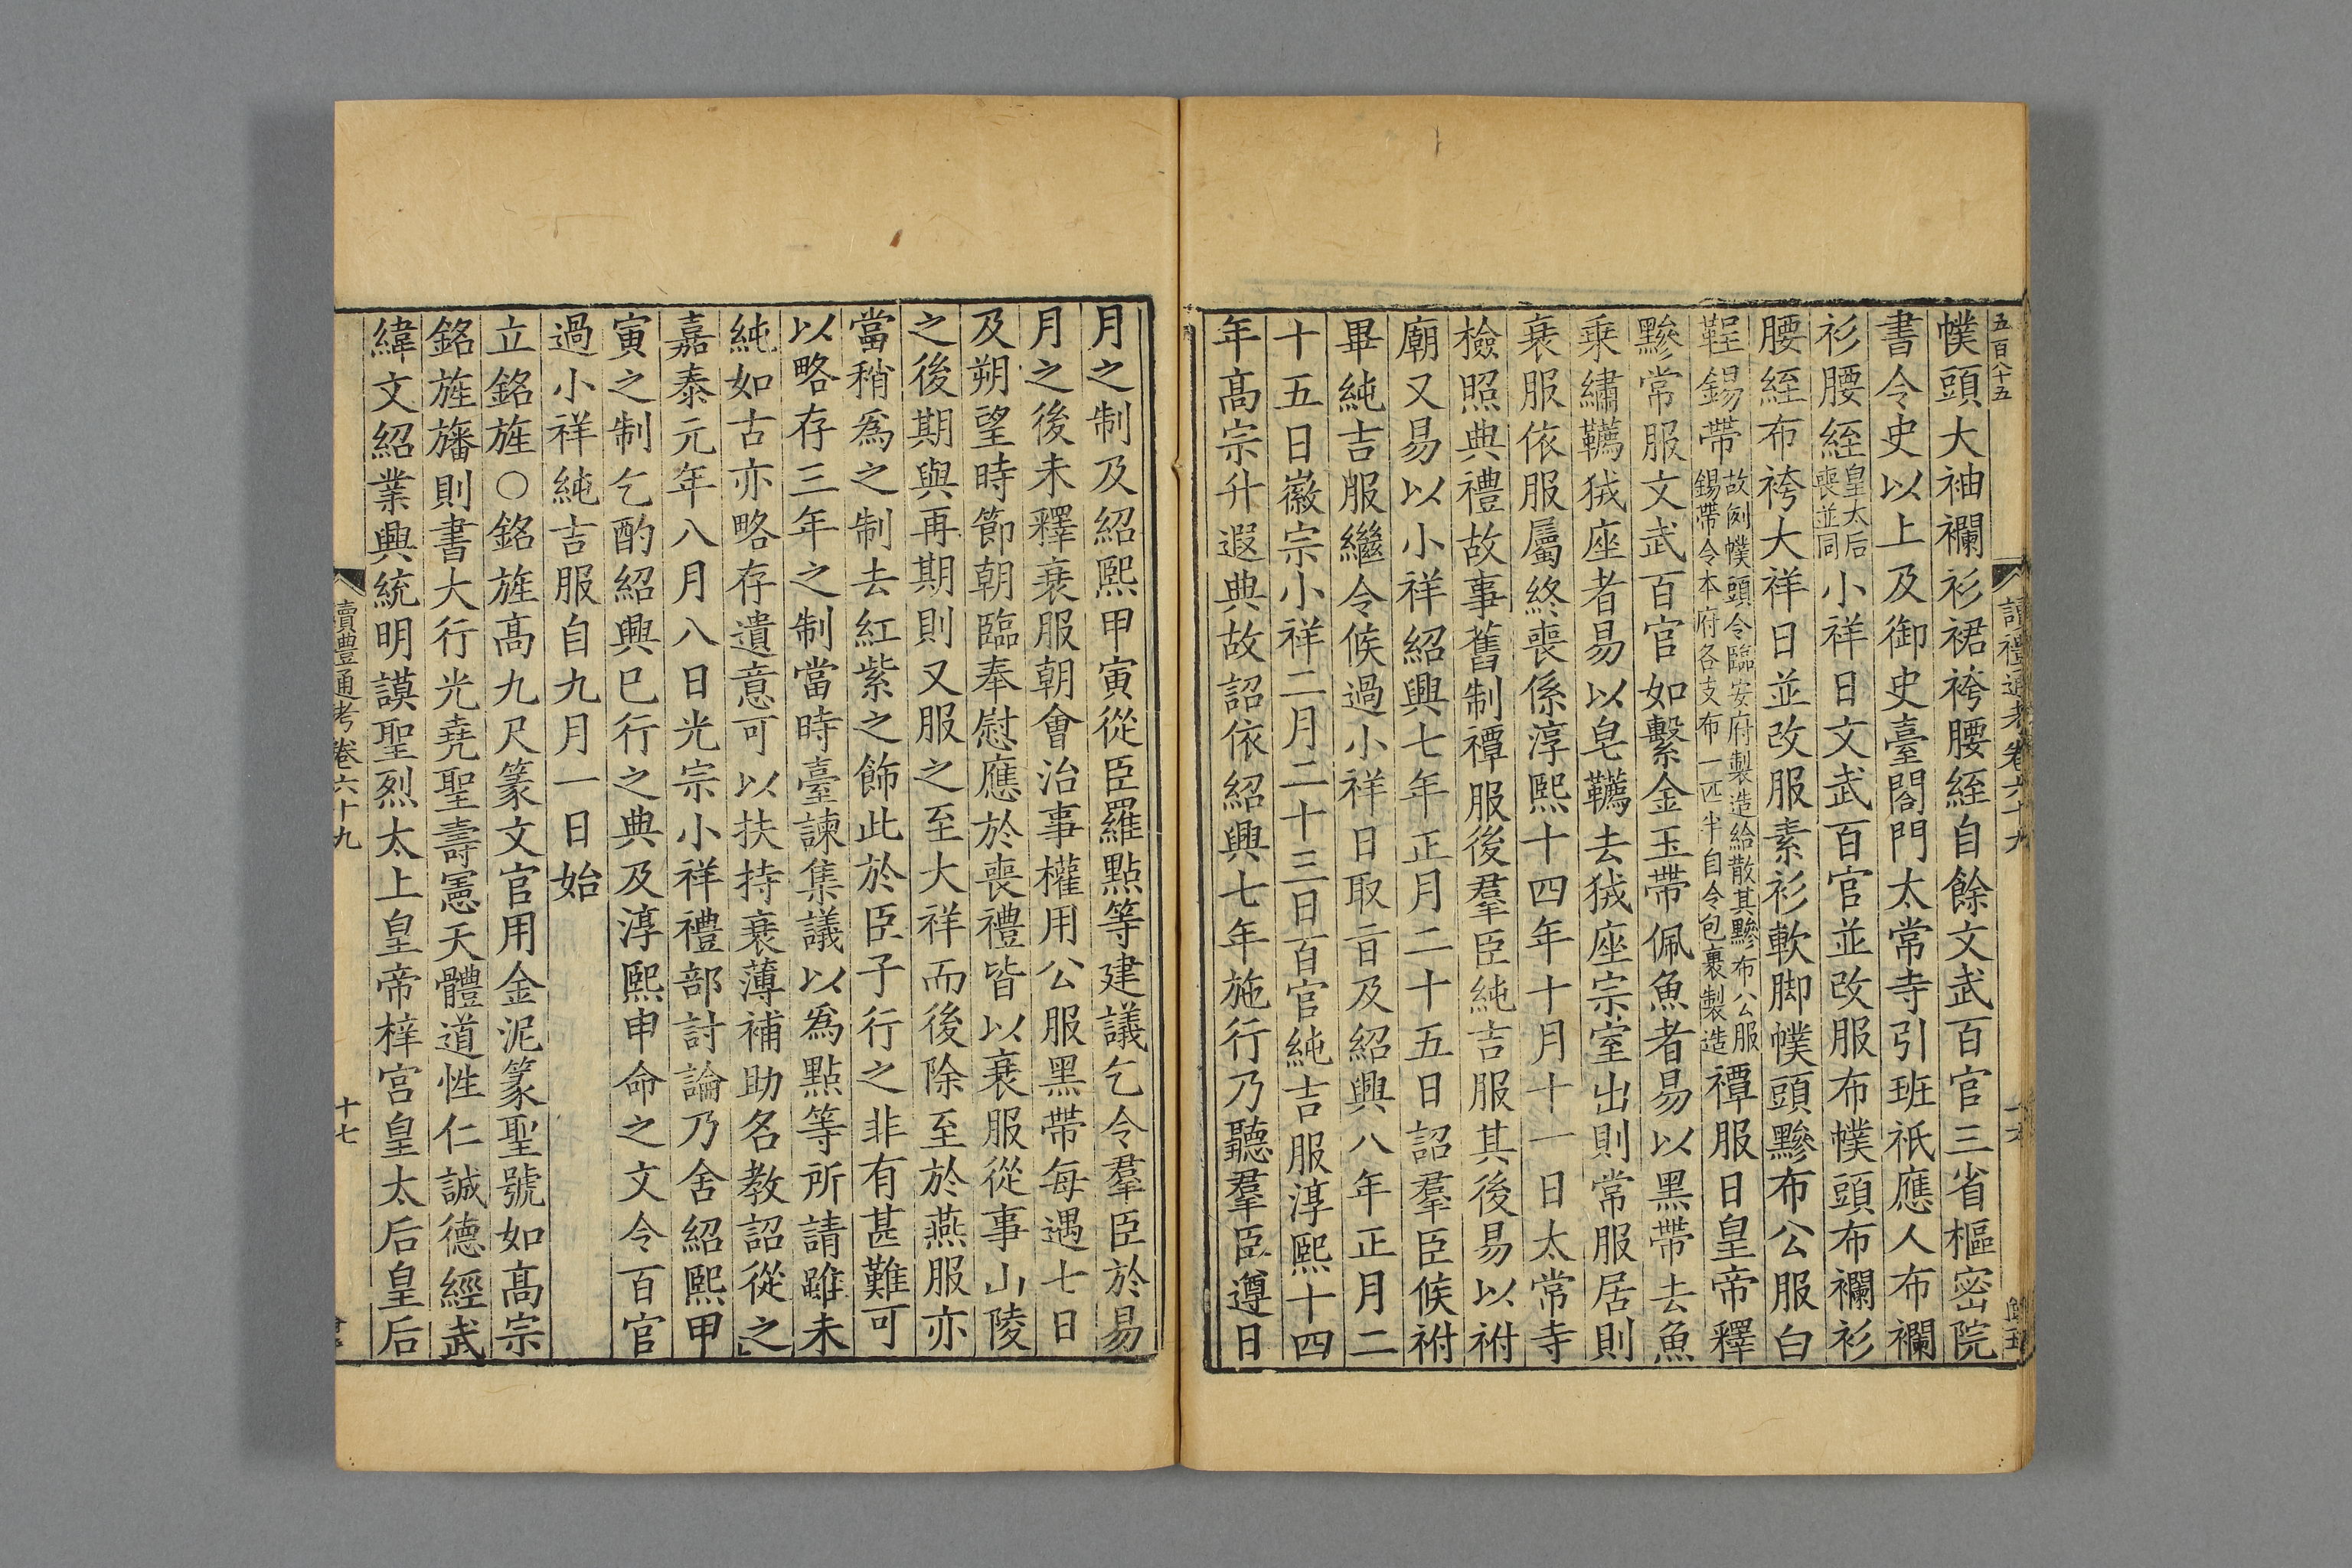 五百八十五
讀禮通考卷六十九
幞頭大袖襴衫裙袴腰絰自餘文武百官三省樞密院
書令史以上及御史臺閤門太常寺引班祇應人布襴
衫腰絰皇太后喪並同小祥日文武百官並改服布幞頭布襴衫
腰絰布袴大祥日並改服素衫軟脚幞頭黲布公服白
鞓錫帶故例幞頭令臨安府製造給散其黲布公服錫帶令本府各支布一匹半自令包裹製造禫服日皇帝釋
黲常服文武百官如繫金玉帶佩魚者易以黑帶去魚
乗繡韉狨座者易以皂韉去狨座宗室出則常服居則
衰服依服屬終喪係淳熙十四年十月十一日太常寺
檢照典禮故事舊制禫服後羣臣純吉服其後易以祔
廟又易以小祥紹興七年正月二十五日詔羣臣候祔
畢純吉服繼令候過小祥日取㫖及紹興八年正月二
十五日徽宗小祥二月二十三日百官純吉服淳熙十四
年高宗升遐典故詔依紹興七年施行乃聽羣臣遵日
月之制及紹熙甲寅從臣羅點等建議乞令羣臣於易
月之後未釋衰服朝會治事權用公服黑帶每遇七日
及朔望時節朝臨奉慰應於喪禮皆以衰服從事山陵
之後期與再期則又服之至大祥而後除至於燕服亦
當稍爲之制去紅紫之飾此於臣子行之非有甚難可
以略存三年之制當時臺諫集議以爲點等所請雖未
純如古亦略存遺意可以扶持衰薄補助名教詔從之
嘉泰元年八月八日光宗小祥禮部討論乃舍紹熙甲
寅之制乞酌紹興已行之典及淳熙申命之文令百官
過小祥純吉服自九月一日始
立銘旌○銘旌髙九尺篆文官用金泥篆聖號如髙宗
銘旌旛則書大行光堯聖壽憲天體道性仁誠德經武
緯文紹業興統明謨聖烈太上皇帝梓宮皇太后皇后
讀禮通考卷六十九
十七